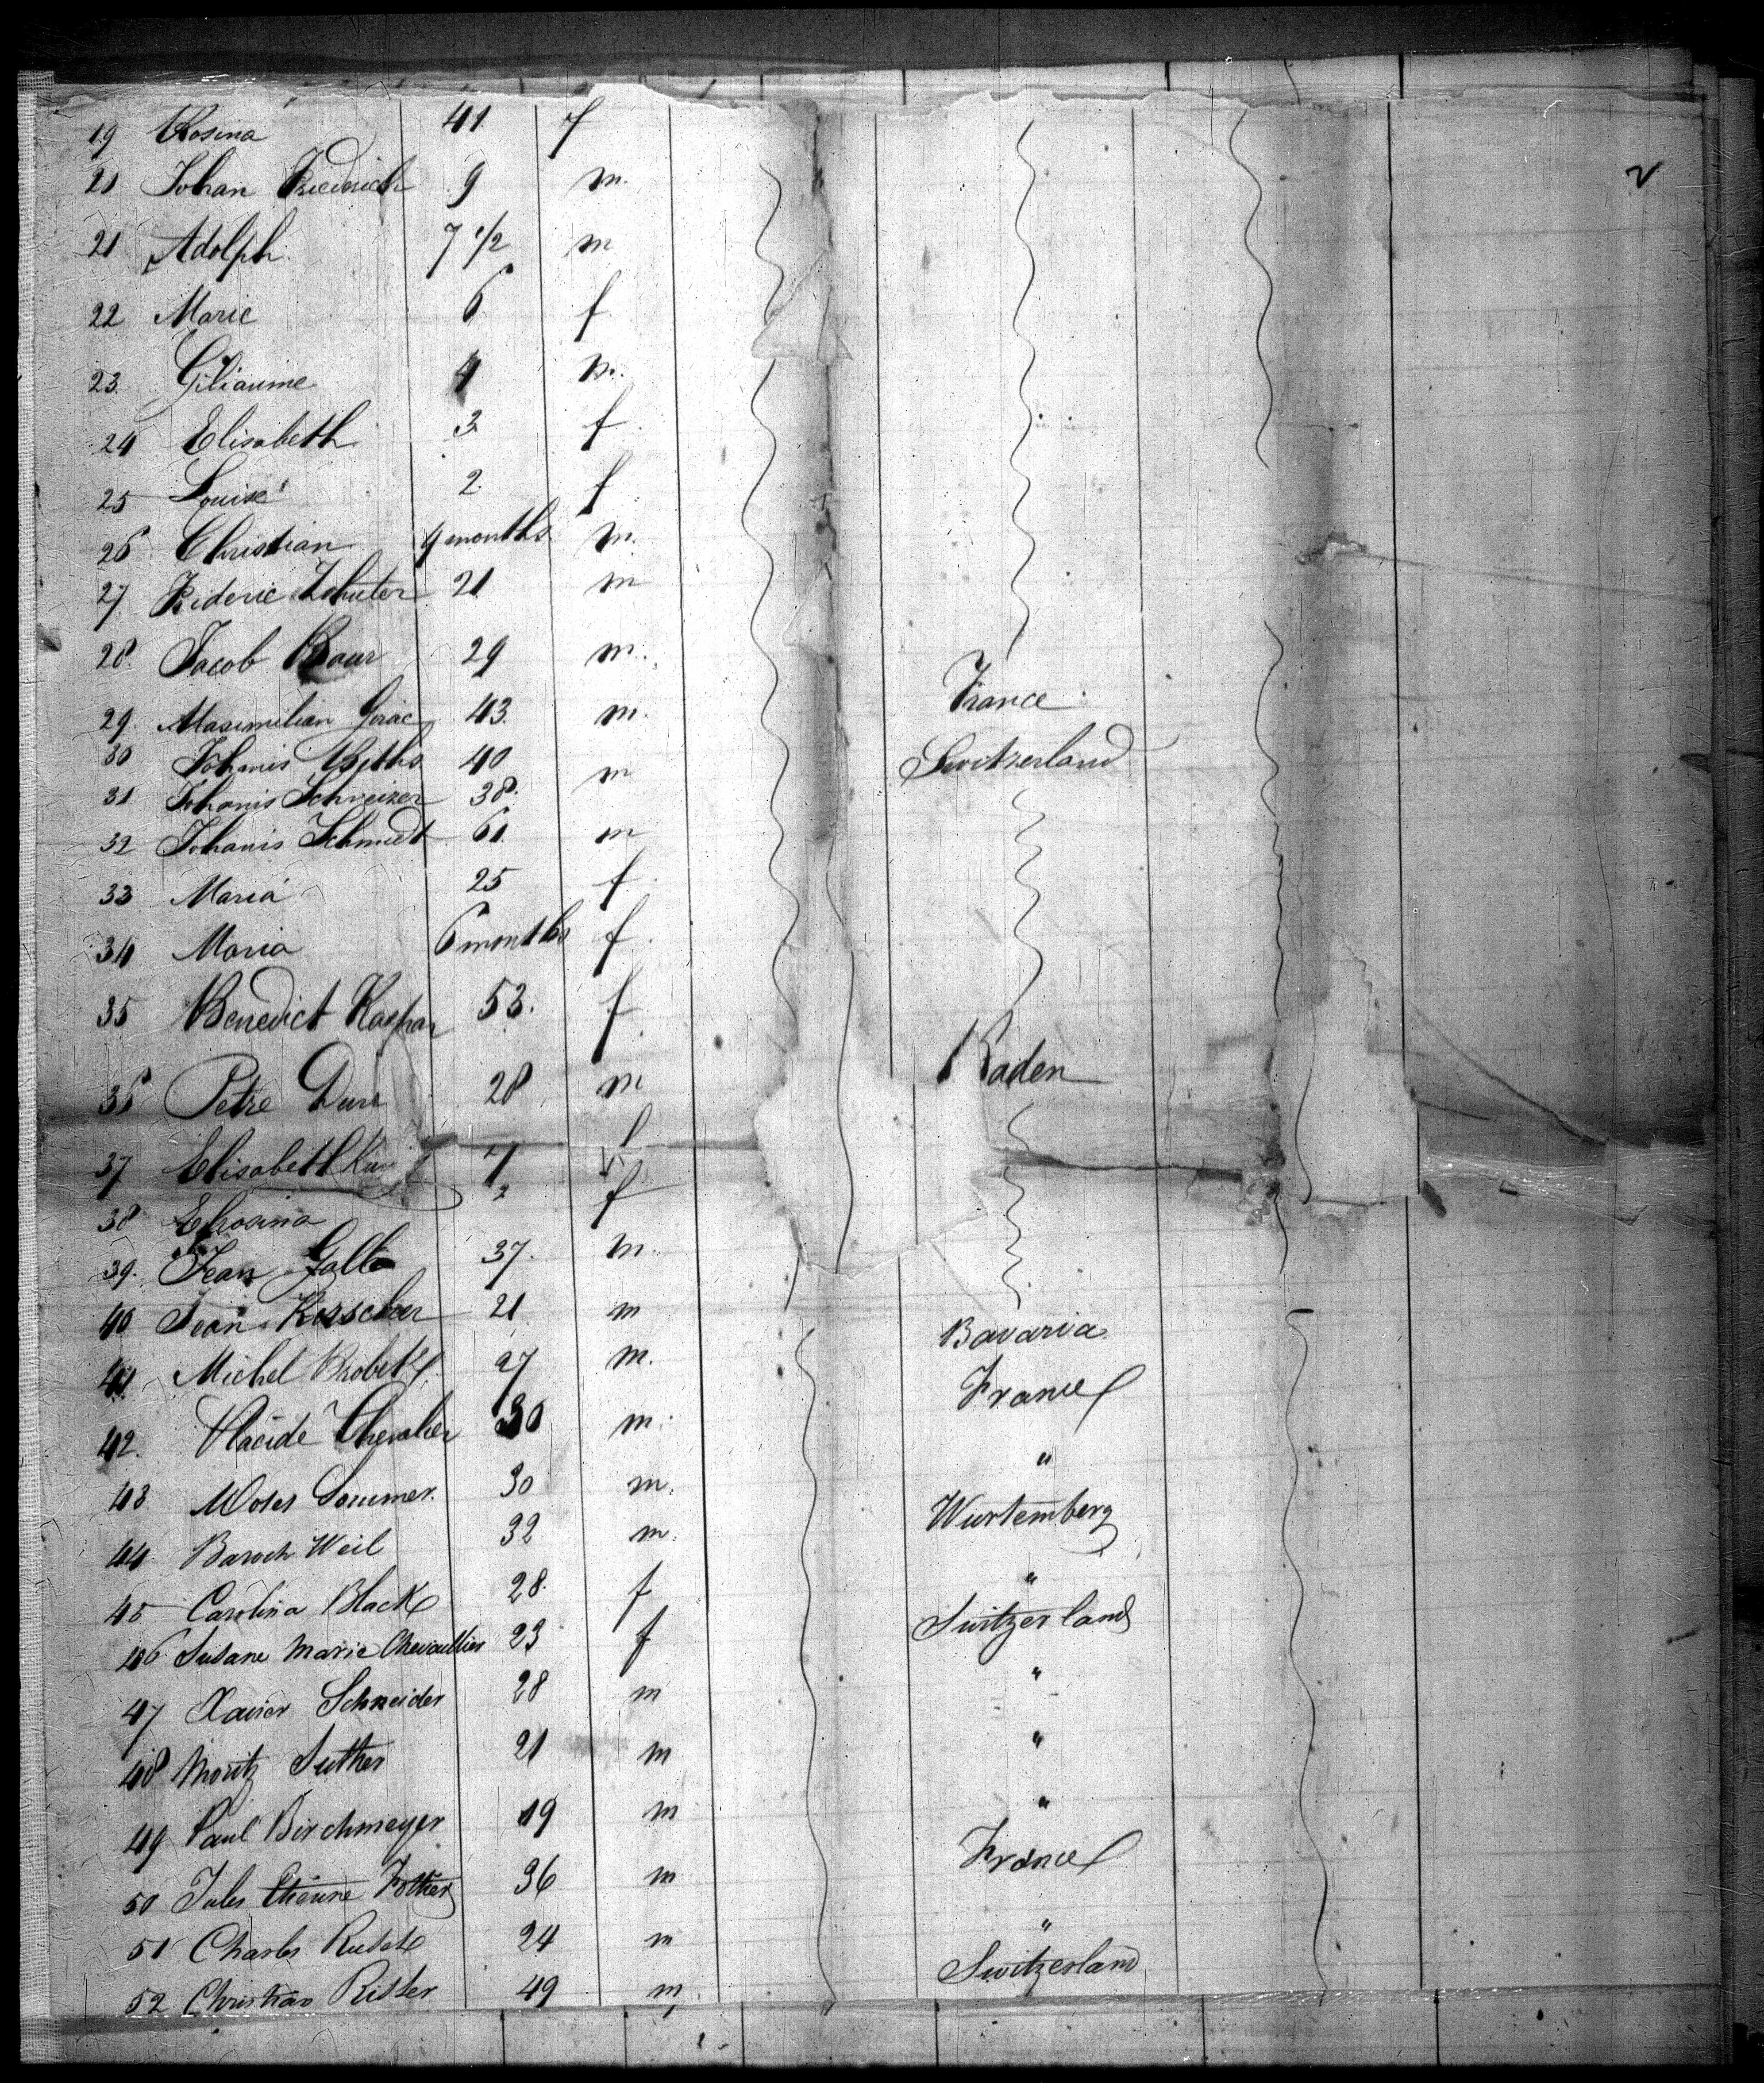 2
19 Rosina 41 f
20 Johan Friedrich 9 m.
21 Adolph 7 1/2 m
22 Marie 6 f
23. Giliaume 4 m.
24 Elisabeth 3 f
25 Louise 2 f
26 Christian 4 months m.
27 Frideric Schuter 21 m
28. Jacob Baur 29 m.
29. Maximilian 43. m. France
30 Johanis 40 m Switzerland
31 Johanis Schweizer 38.
32 Johanis Schmidt 61. m
33 Maria 25 f
34 Maria 6 months f
35 Benedict Kaspar 53. f
36 Petre Durr 28 m Baden
37 Elisabeth 4 f
38 2 f
39. Jean Galle 37. m.
40 Jean Kerscher 21 m Bavaria
41 Michel 27 m. France
42. Placide Chevalier 30 m. "
43 Moses Sommer. 30 m. Wurtemberg
44 Baroch Weil 32 m. "
45 Carolina Black 28. f Switzerland
46 Susane Marie Chevallier 23 f "
47 Xavier Schneider 28 m "
48 Moritz Suther 21 m "
49 Paul Birchmeyer 19 m France
50 Jules Etienne Pothier 36 m "
51 Charles 24 m Switzerland
52 Christian Ritter 49 m